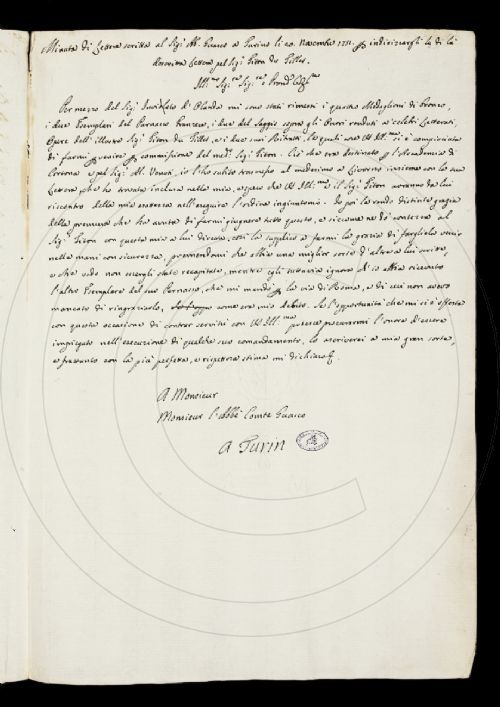 Minuta di Lettera scritta al Sigr Ab. Guasco a Torino li 20. Novembre 1751. p indirizzargli la di là
annessa Lettera pel Sigr Titon du Tillet.
Illmo Sigr Sigr e Prone Colmo
Per mezzo del Sigr d'Olanda mi sono stati rimessi i quattro Medaglioni di bronzo,
i due Esemplari del Parnasso francese, i due del Saggio sopra gli Onori renduti a' celebri Letterati,
Opere dell'illustre Sigr Titon du Tillet, e i due suoi Ritratti, le quali cose VS Illma si è compiaciuta
di farmi venire p commissione del medo Sigr Titon. Ciò che era destinato p l'Accademia di
Cortona e pel Sigr Ab. Venuti, io l'ho subito trasmesso al medesimo a Livorno insieme con la sua
Lettera che ho trovata inclusa nella mia, e spero che VS Illma e il Sigr Titon avranno da lui
riscontro della mia esattezza nell'eseguire l'ordine ingiuntomi. Io poi le rendo distinte grazie
della premura che ha avuta di farmi giugnere tutto questo, e siccome ne dò contezza al
Sigr Titon con questa mia a lui diretta, così la supplico a farmi la grazia di fargliela venire
nelle mani con sicurezza, premendomi che abbia una miglior sorte d'altra a lui scritta,
e che vedo non essergli stata recapitata, mentre egli tuttavia ignora ch'io abbia ricevuto
l'altro Esemplare del suo Parnasso, che mi mandò p la via di Roma, e di cui non avevo
mancato di ringraziarlo, come era mio debito. Se l'opportunità che mi si è offerta
con questa occasione di contrar servitù con VS Illma potesse procurarmi l'onore d'essere
impiegato nell'esecuzione di qualche suo comandamento, lo ascriverei a mia gran sorte,
e frattanto con la più perfetta, e rispettosa stima mi dichiaro
A Monsieur
Monsieur l'Abbé Comte Guasco
A Turin